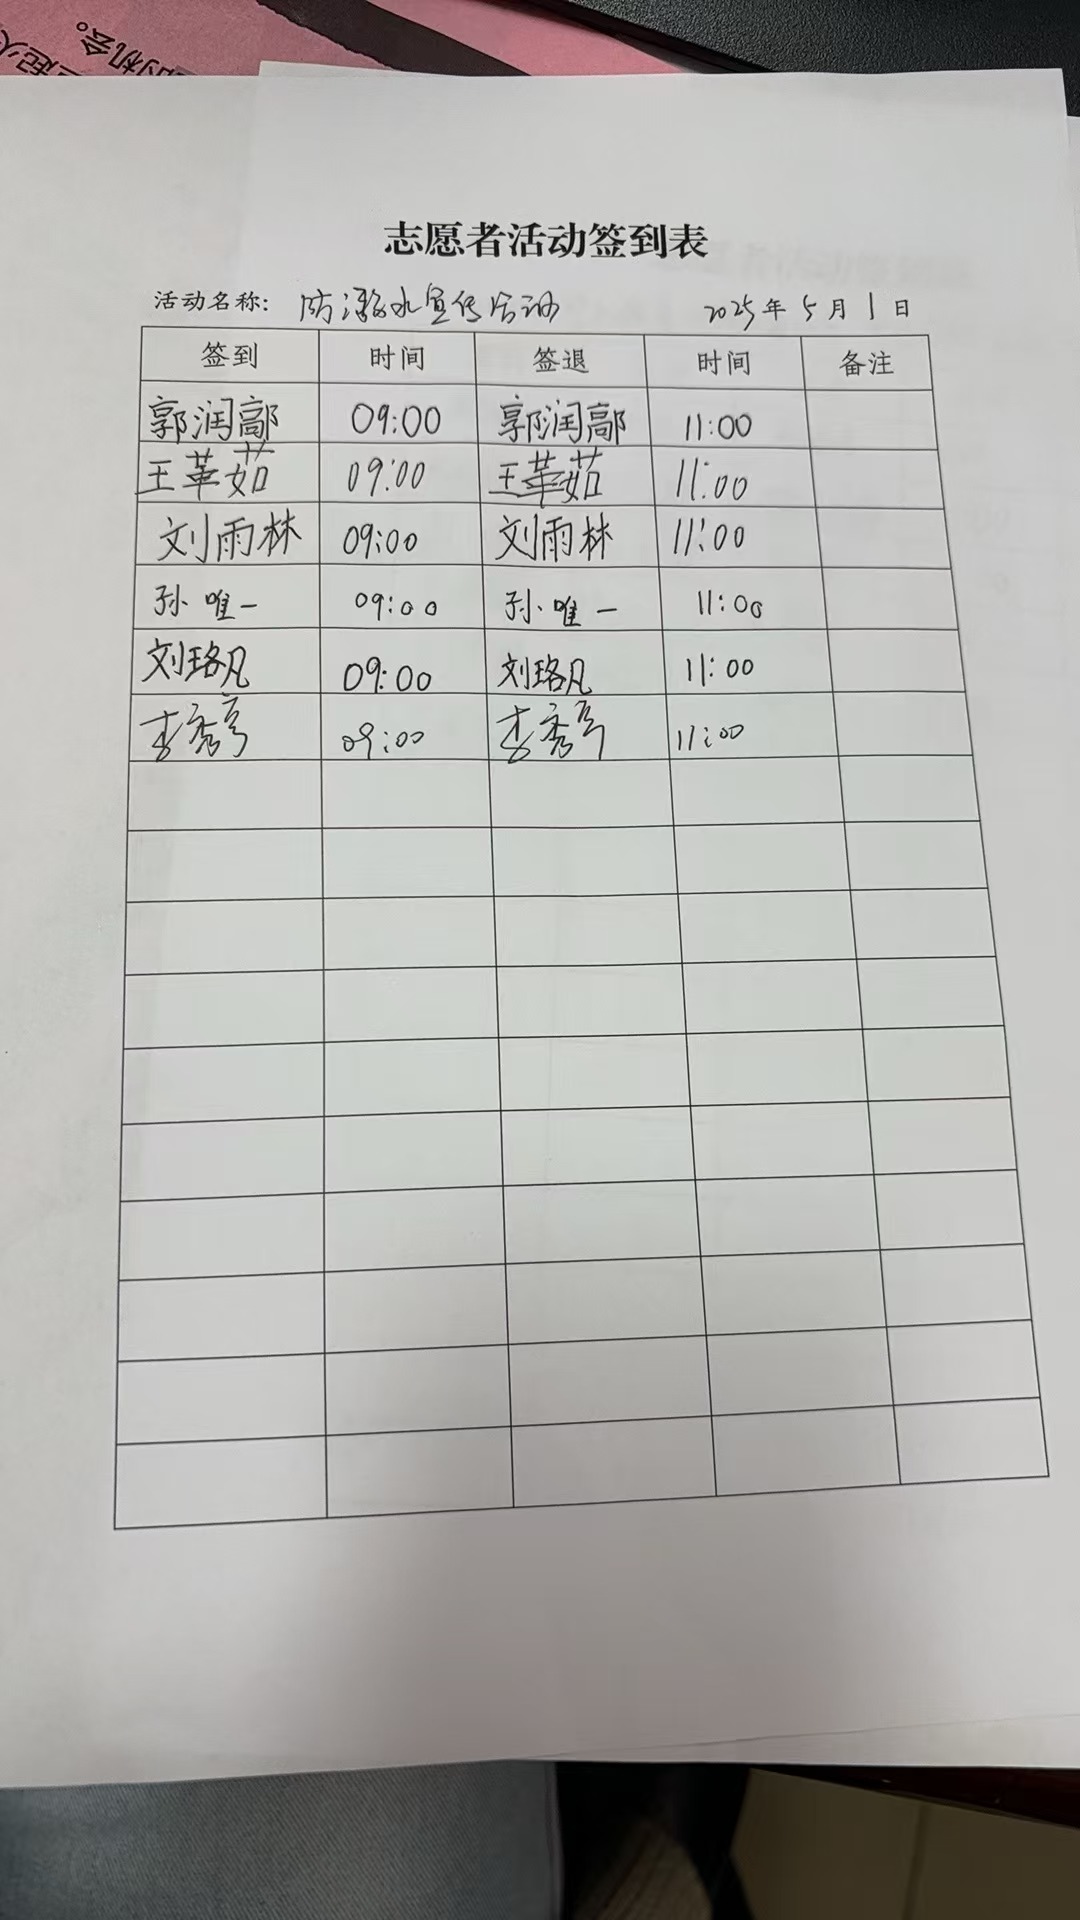 起火
的机会。
志愿者活动签到表
活动名称: 防溺水宣传活动 2025年5月1日
签到 时间 签退 时间 备注
郭润鄗 09:00 郭润鄗 11:00
王革茹 09:00 王革茹 11:00
刘雨林 09:00 刘雨林 11:00
孙唯一 09:00 孙唯一 11:00
刘珞凡 09:00 刘珞凡 11:00
李秀亭 09:00 李秀亭 11:00